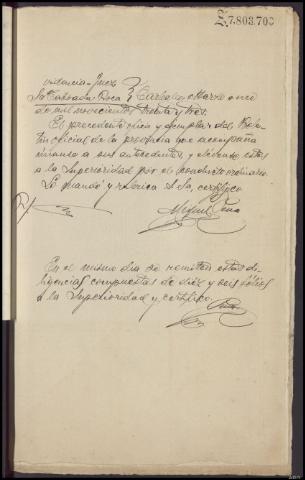 E.7.803.703
Providencia Juez
Sr Taboada Roca } Carballo Marzo once
de mil novecientos treinta y tres.
El precedente oficio y ejemplar del Bole-
tin oficial de la provincia que acompaña
únanse a sus antecedentes, y elévense estos
a la Superioridad por el conducto ordinario.
Lo mandó y rubrica S. Sa, certifico
Miguel
En el mismo dia se remiten estas di-
ligencias compuestas de diez y seis folios
a la Superioridad y certifico